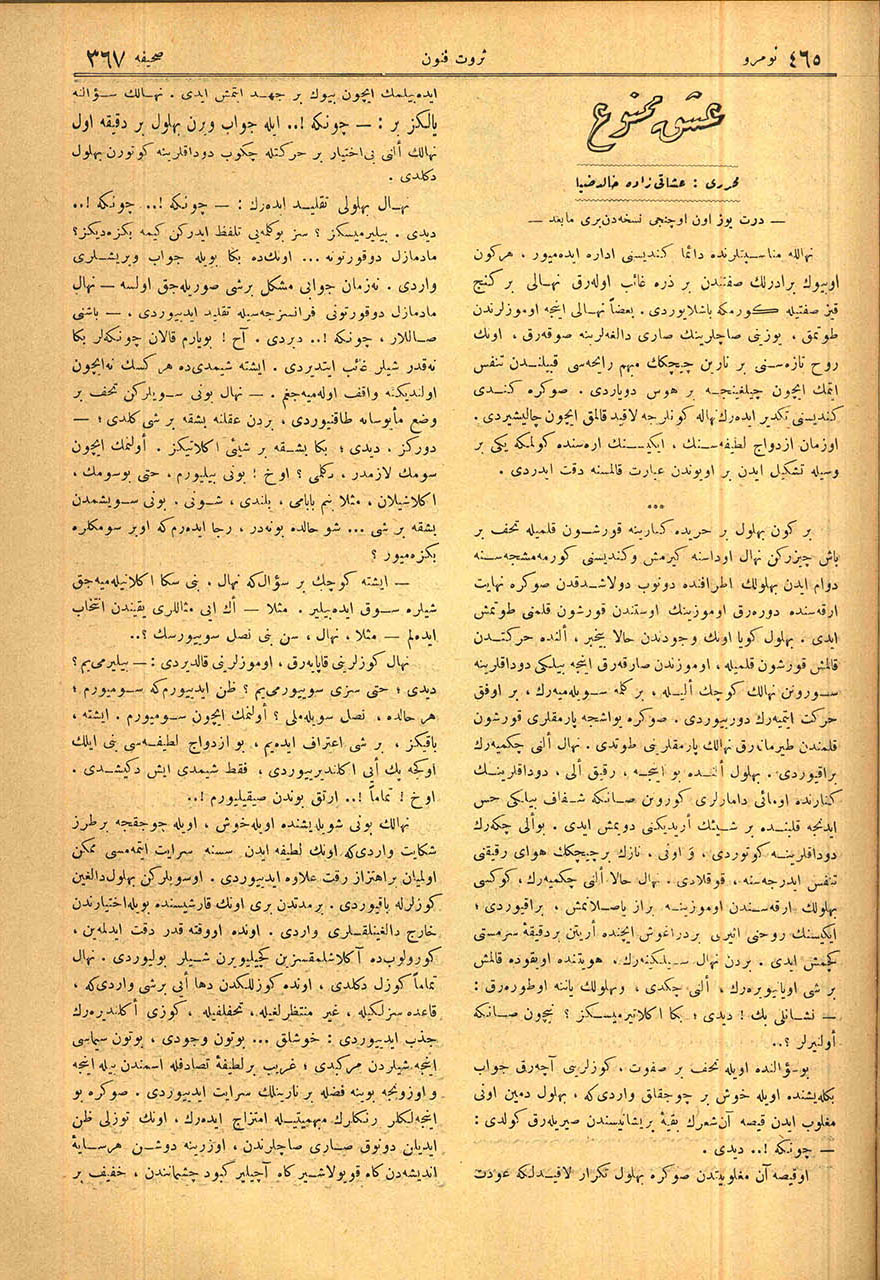 نومرو ٤٦٥
ثروت فنون
صحیفه ٣٦٧
عشق ممنوع
محرری : عشاقی زاده خالد ضیا
— درت یوز اون اوچنجی نسخه‌دن‌بری مابعد —
نهالله مناسبتلرنده دائما كندیسنی اداره ایده‌میور ، هركون
اوبیوك برادرلك صفتندن بر ذره غائب اوله‌رق نهالی بر كنج
قیز صفتیله كورمكه باشلایوردی . بعضاً نهالی اینجه اوموزلرندن
طوتمق ، یوزینی صاچلرینك صاری دالغه‌لرینه صوقه‌رق ، اونك
روح تازه‌سنی بر نارین چیچكك مبهم رایحه‌سی قبیلندن تنفس
ایتمك ایچون چیلغینجه بر هوس دویاردی . صوكره كندی
كندیسنی تكدیر ایده‌رك نهاله كونلرجه لاقید قالمق ایچون چالیشیردی .
اوزمان ازدواج لطیفه‌سنك ، ایكیسنك اره‌سنده كولمكه یكی بر
وسیله تشكیل ایدن بر اویوندن عبارت قالمسنه دقت ایدردی .
***
بر كون بهلول بر جریده كنارینه قورشون قلمیله تحف بر
باش چیزركن نهال اوداسنه كیرمش وكندیسنی كورمه‌مشجه‌سنه
دوام ایدن بهلولك اطرافنده دونوب دولاشدقدن صوكره نهایت
ارقه‌سنده دوره‌رق اوموزینك اوستندن قورشون قلمنی طوتمش
ایدی . بهلول كویا اونك وجودندن حالا بیخبر ، ألنده حركتدن
قالمش قورشون قلمیله ، اوموزندن صارقه‌رق اینجه بیلكی دوداقلرینه
سورونن نهالك كوچك ألیله ، بر كله سویله‌میه‌رك ، بر اوفق
حركت ایتمیه‌رك دورییوردی . صوكره یواشجه پارمقلری قورشون
قلمندن طیرمانه‌رق نهالك پارمقلرینی طوتدی . نهال ألنی چكمیه‌رك
براقیوردی . بهلول ألنده بو اینجه ، رقیق ألی ، دوداقلرینك
كنارنده اومائی دامارلری كورونن صانكه شفاف بیلكی حس
ایدنجه قلبنده بر شیئك أریدیكنی دویمش ایدی . بوألی چكه‌رك
دوداقلرینه كوتوردی ، و اونی ، نازك برچیچكك هوای رقیقنی
تنفس ایدرجه‌سنه ، قوقلادی . نهال حالا ألنی چكمیه‌رك ، كوكسی
بهلولك ارقه‌سندن اوموزینه براز یاصلانمش ، براقیوردی ؛
ایكیسنك روحنی اثیری بردراغوش ایچنده أریتن بردقیقۀ سرمستی
كچمش ایدی . بردن نهال سیلكینه‌رك ، هویتنده اویقوده قالمش
بر شی اویانیویره‌رك ، ألنی چكدی ، وبهلولك یاننه اوطوره‌رق :
— نشانلی بك ! دیدی ؛ بكا اكلاتیرمیسكز ؟ نیچون صانكه
أولنیرلر ؟..
بوسؤالنده اویله تحف بر صفوت ، كوزلرینی آچه‌رق جواب
بكله‌یشنده اویله خوش بر چوجقلق واردی‌كه ، بهلول دمین اونی
مغلوب ایدن قیصه آن شعرك بقیۀ پریشانیسندن صیریله‌رق كولدی :
— چونكه !.. دیدی .
اوقیصه آن مغلوبیتدن صوكره بهلول تكرار لاقیدلكه عودت
ایده‌بیلمك ایچون بیوك بر جهد ایتمش ایدی . نهالك سؤالنه
یالكز بر : — چونكه !.. ایله جواب ویرن بهلول بر دقیقه اول
نهالك ألنی بی‌اختیار بر حركتله چكوب دوداقلرینه كوتورن بهلول
دكلدی .
نهال بهلولی تقلید ایده‌رك : — چونكه !.. چونكه !..
دیدی . بیلیرمیسكز ؟ سز بوكله‌یی تلفظ ایدركن كیمه بكزه‌دیكز؟
مادمازل دوقورتونه ... اونك‌ده بكا بویله جواب ویریشلری
واردی . نه‌زمان جوابی مشكل برشی صوریله‌جق اولسه — نهال
مادمازل دوقورتونی فرانسزجه‌سیله تقلید ایدییوردی . — باشنی
صاللار ، چونكه !.. دیردی . آخ ! بویارم قالان چونكه‌لر بكا
نه‌قدر شیلر غائب ایتدیردی . ایشته شیمدی‌ده هر كسك نه‌ایچون
اولندیكنه واقف اوله‌میه‌جغم . — نهال بونی سویلركن تحف بر
وضع مأیوسانه طاقنیوردی ، بردن عقلنه بشقه بر شی كلدی ؛ —
دوركز ، دیدی ؛ بكا بشقه بر شیئی اكلاتیكز . أولنمك ایچون
سومك لازمدر ، دكلمی ؟ اوخ ! بونی بیلیورم . حتی بوسومك ،
اكلاشیلان ، مثلا بنم بابامی ، بلندی ، شونی . بونی سویشمدن
بشقه بر شی ... شو حالده بونه‌در ، رجا ایده‌رم‌كه اوبر سومكلره
بكزه‌میور ؟
— ایشته كوچك بر سؤال‌كه نهال ، بنی سكا اكلاتیله‌میه‌جق
شیلره سوق ایده‌بیلیر . مثلا — أك ایی مثاللری یقیندن انتخاب
ایده‌لم — مثلا ، نهال ، سن بنی نصل سویورسك ؟..
نهال كوزلرینی قاپایه‌رق ، اوموزلرینی قالدیردی : — بیلیرمی‌یم ؟
دیدی ؛ حتی سزی سویورمی‌یم ؟ ظن ایدییورم‌كه سومیورم ؛
هر حالده ، نصل سویله‌ملی ؟ أولنمك ایچون سومیورم . ایشته ،
باقیكز ، بر شی اعتراف ایده‌یم ، بو ازدواج لطیفه‌سی بنی ایلك
اوكجه پك أیی اكلندیرییوردی ، فقط شیمدی ایش دكیشدی .
اوخ ! تماماً !.. ارتق بوندن صیقیلیورم !..
نهالك بونی شویله‌یشنده اویله‌خوش ، اویله چوجقجه برطرز
شكایت واردی‌كه اونك لطیفه ایدن سسنه سرایت ایتمه‌مسی ممكن
اولمیان براهتزاز رقت علاوه ایدییوردی . اوسویلركن بهلول‌دالغین
كوزلرله باقیوردی . برمدتدن بری اونك قارشیسنده بویله‌اختیارندن
خارج دالغینلقلری واردی . اونده اووقته قدر دقت ایدلمه‌ین ،
كورولوب‌ده آكلاشلمقسزین كچیلیویرن شیلر بولیوردی . نهال
تماماً كوزل دكلدی ، اونده كوزللكدن دها أیی برشی واردی‌كه ،
قاعده سزلكیله ، غیر منتظرلغیله ، تحفلغیله ، كوزی أكلندیره‌رك
جذب ایدییوردی : خوشلق ... بوتون وجودی ، بوتون سیماسی
اینجه شیلردن مركبدی ؛ غریب بر لطیفۀ تصادفله اسمندن بیله اینجه
و اوزونجه بوینه فضله بر نارینلك سرایت ایدییوردی . صوكره بو
اینجه‌لكلر رنكلرك مبهمیتیله امتزاج ایده‌رك ، اونك توزلی ظن
ایدیلن دونوق صاری صاچلرندن ، اوزرینه دوشن هرسایۀ
اندیشه‌دن كاه قویولاشیر كاه آچیلیر كبود چشماندن ، خفیف بر